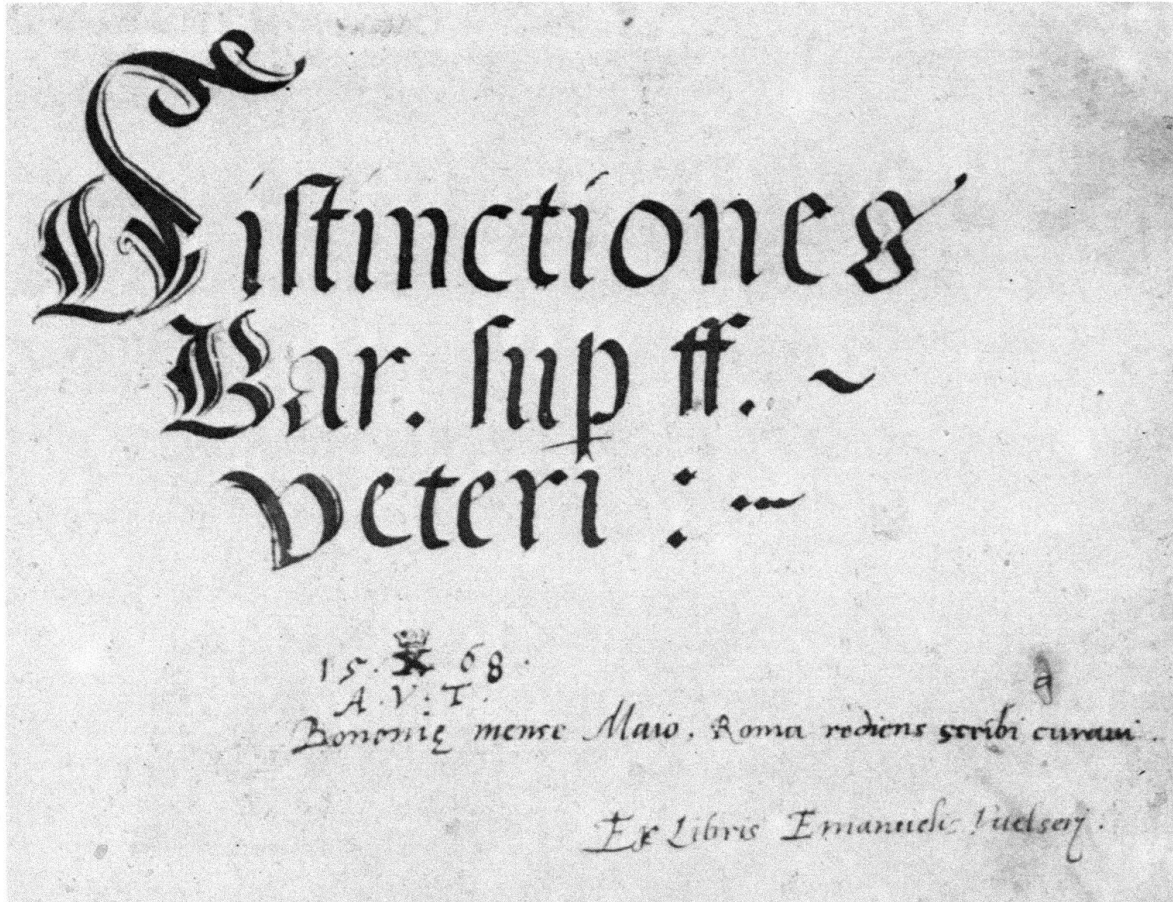 Distinctiones
Bar. sup ff. ~
veteri : ~
15 · X · 68 ·
A · V : T ·
Bononię mense Maio. Roma rediens scribi curaui.
a
Ex Libris Emanuelis Vuelserj.